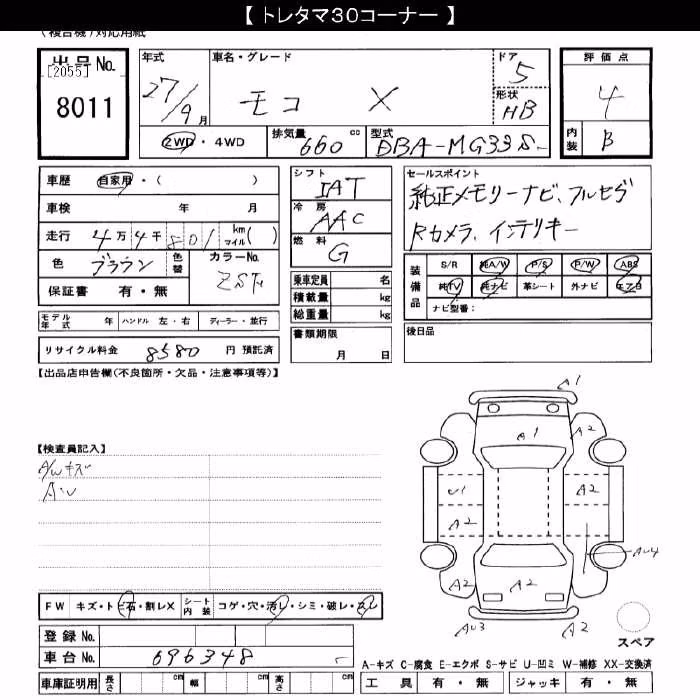 【 トレタマ30コーナー 】
(複合機)対応用紙
出品No.
[2055]
8011
年式
27/9月
車名・グレード
モコ X
ドア
5
形状
HB
評価点
4
内装
B
2WD ・ 4WD
排気量 660 cc
型式 DBA-MG33S
車歴 自家用・( )
車検 年 月
走行 4万4千801 km マイル( )
色 ブラウン 色替 カラーNo. ZST
保証書 有・無
シフト
IAT
冷房
AAC
燃料
G
乗車定員 名
積載量 kg
総重量 kg
セールスポイント
純正メモリーナビ、フルセグ
Rカメラ、インテリキー
装備品
S/R 純A/W P/S P/W ABS
純TV 純ナビ 革シート 外ナビ エアB
ナビ型番:
モデル年式 年 ハンドル 左・右 ディーラー・並行
リサイクル料金 8580 円 預託済
書類期限
月 日
後日品
【出品店申告欄(不良箇所・欠品・注意事項等)】
【検査員記入】
A/Wキズ
A・U
A1
A1
A2
U1
A2
A2
AU4
A2
A2
A2
AU3
A2
スペア
FW キズ・ト ビ石・割レX シート内装 コゲ・穴・汚レ・シミ・破レ・スレ
登録 No.
車台 No. 696348
車庫証明用 長さ cm 幅 cm 高さ cm
A-キズ C-腐食 E-エクボ S-サビ U-凹ミ W-補修 XX-交換済
工具 有・無 ジャッキ 有・無